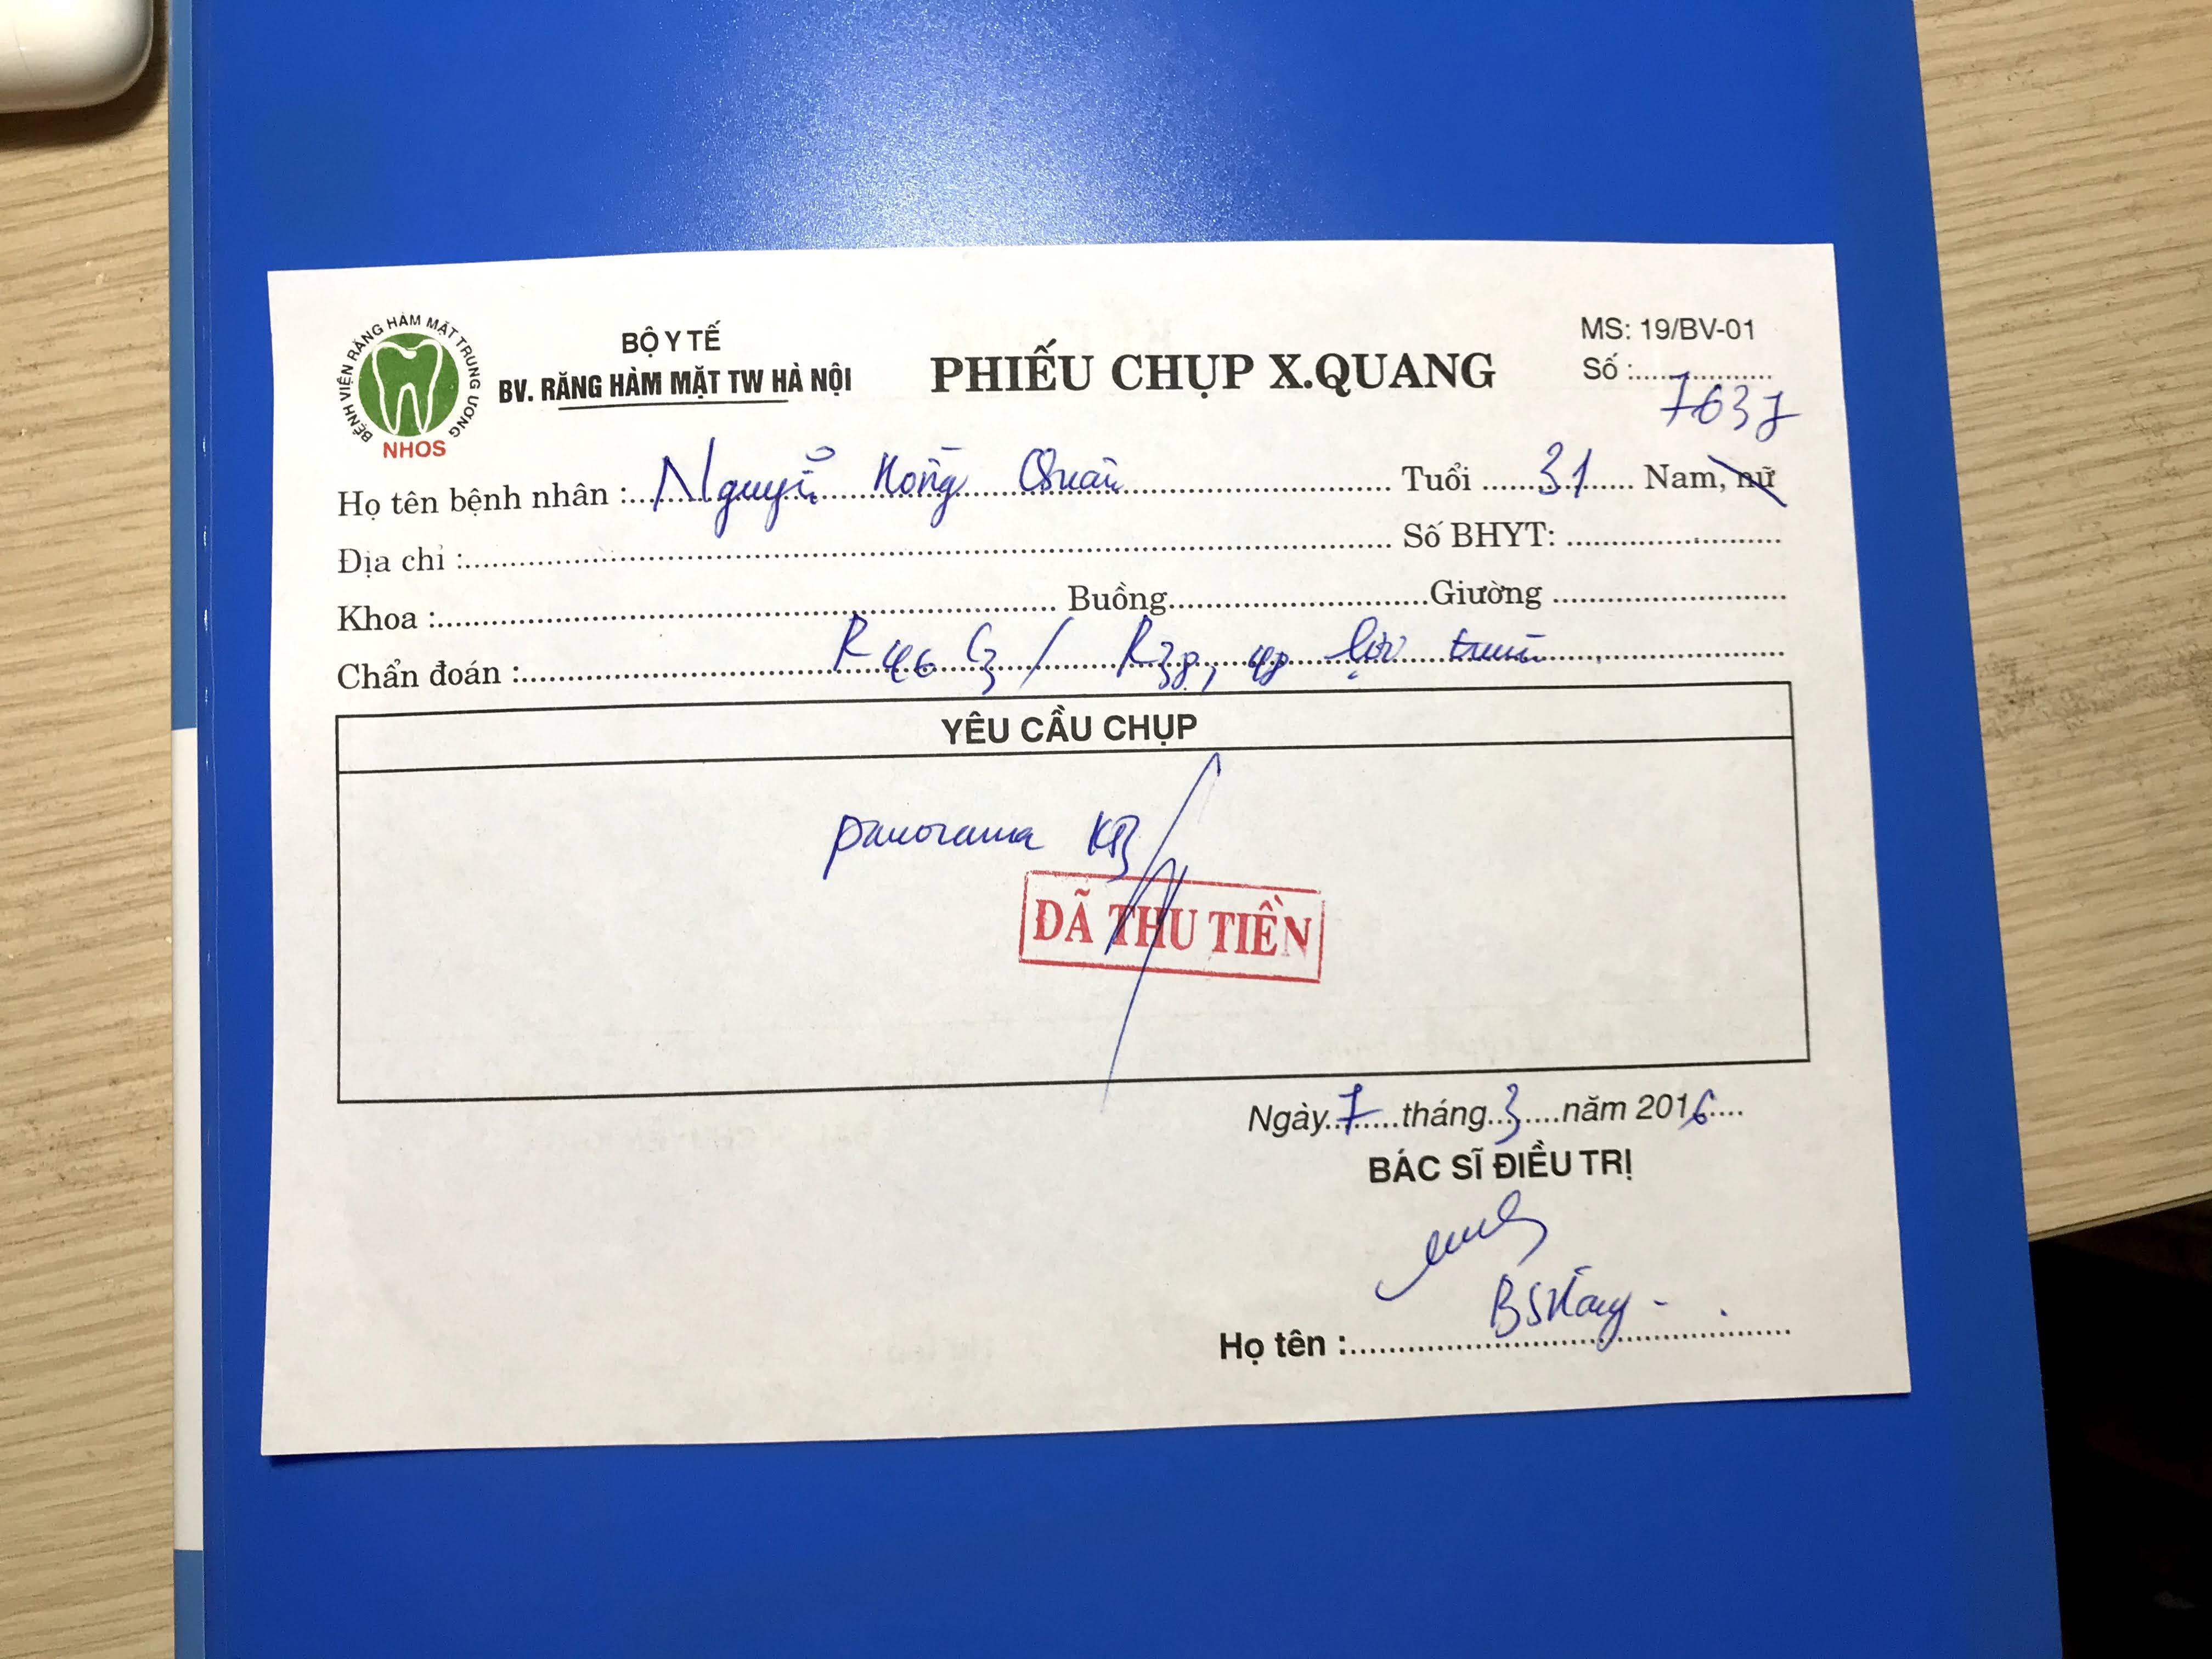 BỆNH VIỆN RĂNG HÀM MẶT TRUNG ƯƠNG
NHOS
BỘ Y TẾ
BV. RĂNG HÀM MẶT TW HÀ NỘI
PHIẾU CHỤP X.QUANG
MS: 19/BV-01
Số : 7637
Họ tên bệnh nhân : Nguyễn Tuổi 31 Nam, nữ
Địa chỉ : Số BHYT:
Khoa : Buồng Giường
Chẩn đoán : R46 / R38, 48
YÊU CẦU CHỤP
panorama
ĐÃ THU TIỀN
Ngày 7 tháng 3 năm 2016
BÁC SĨ ĐIỀU TRỊ
Họ tên :